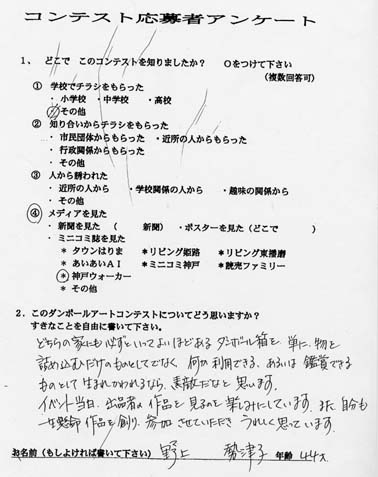 コンテスト応募者アンケート
1、 どこで このコンテストを知りましたか？ ○をつけて下さい
（複数回答可）
① 学校でチラシをもらった
・小学校 ・中学校 ・高校
・その他
② 知り合いからチラシをもらった
・市民団体からもらった ・近所の人からもらった
・行政関係からもらった
・その他
③ 人から誘われた
・近所の人から ・学校関係の人から ・趣味の関係から
・その他
④ メディアを見た
・新聞を見た （ 新聞） ・ポスターを見た（どこで ）
・ミニコミ誌を見た
＊タウンはりま ＊リビング姫路 ＊リビング東播磨
＊あいあいＡＩ ＊ミニコミ神戸 ＊読売ファミリー
＊神戸ウォーカー
＊その他
2．このダンボールアートコンテストについてどう思いますか？
すきなことを自由に書いて下さい。
どちらの家にも必ずといってよいほどある ダンボール箱を 単に、物を
詰め込むだけのものとしてでなく、何か利用できる、あるいは鑑賞できる
ものとして 生まれかわれるなら、素敵だなと 思います。
イベント当日、出品者の作品を見るのを楽しみにしています。また、自分も
一生懸命 作品を創り、参加させていただき うれしく思っています。
お名前（もしよければ書いて下さい） 野上 勢津子 年齢 44才